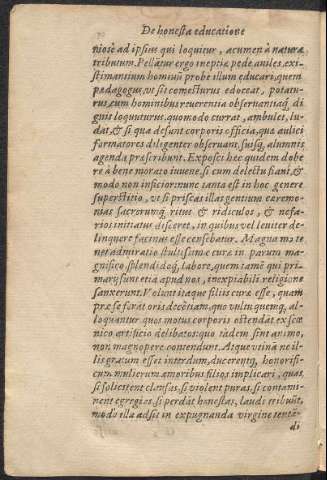 De honesta educatione
niosè ad ipsius qui loquitur, acumen à naturæ
tributum. Pellātur ergo ineptiæ pedē aniles, exi-
stimantium hominū probè illum educari, quem
pædagogus, ut sit comesturus edoceat, potatu-
rus, cum hominibus reuerentia obseruantiaq́; di
gnis loquuturus. quomodo currat, ambulet, lu-
dat, & si qua desunt corporis officia, quæ aulici
formatores diligenter obseruant, suisq́; alumnis
agenda præscribunt. Exposci hæc quidem debe
re à bene morato iuuene, si cum delectu fiant, &
modo non inficior: nunc tanta est in hoc genere
superstitio, ut si priscas illas gentium cæremo-
nias sacrorumq́; ritus & ridiculos, & nefa-
rios initiatus disceret, in quibus vel leuiter de-
linquere facinus esse censebatur. Magna me te
net admiratio stultissimæ curæ in parum ma-
gnifico splendidoq́; labore, quem tamē qui pri-
marij sunt etiā apud nos, inexpiabili religione
sanxerunt. Volunt itaque filiis curæ esse, quam
præ se ferāt oris decētiam, quo vultu quemq́; al-
loquantur quos motus corporis ostendāt ex scœ
nico artificio delibatos: quo iidem sint animo,
non magnopere contendunt. Atque vtinā ne il-
lis gratum esset interdum, ducerentq́; honorifi-
cum mulierum amoribus filios implicari, quas,
si solicitent clausas, si violent puras, si contami-
nent egregias, si perdāt honestas, laudi tribuūt,
modò illa adsit in expugnanda virgine tentā-
di